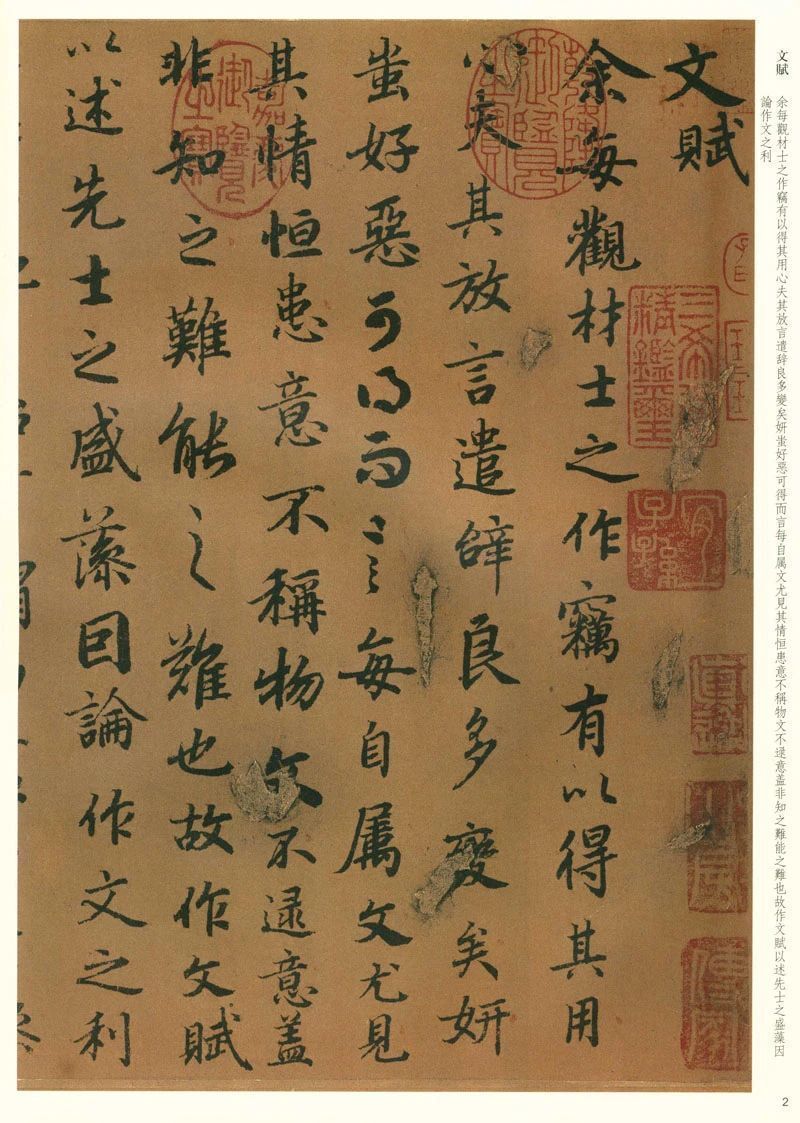 文賦
余每觀材士之作竊有以得其用心夫其放言遣辞良多變矣妍蚩好惡可得而言每自属文尤見其情恒患意不稱物文不逮意盖非知之難能之難也故作文賦以述先士之盛藻因
論作文之利
文賦
余每觀材士之作竊有以得其用
心夫其放言遣辝良多變矣妍
蚩好惡可得而言每自属文尤見
其情恒患意不稱物文不逮意盖
非知之難能之難也故作文賦
以述先士之盛藻因論作文之利
三希堂精鑑璽
宜子孫
乾隆御覽之寶
嘉慶御覽之寶
2